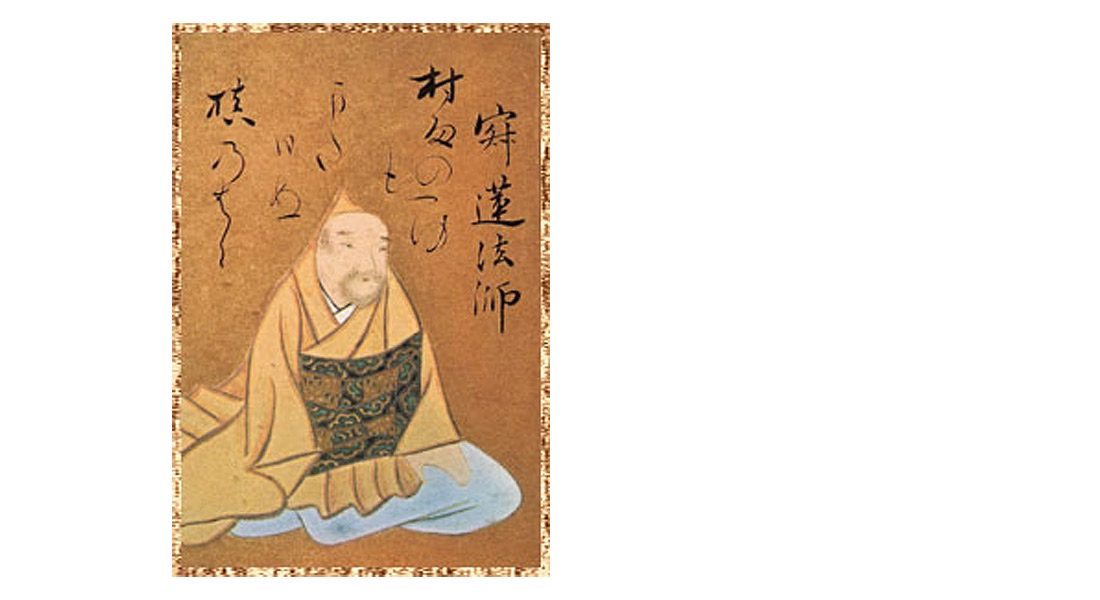 寂蓮法師
村雨のつゆ
も
また
ひぬ
槙のは